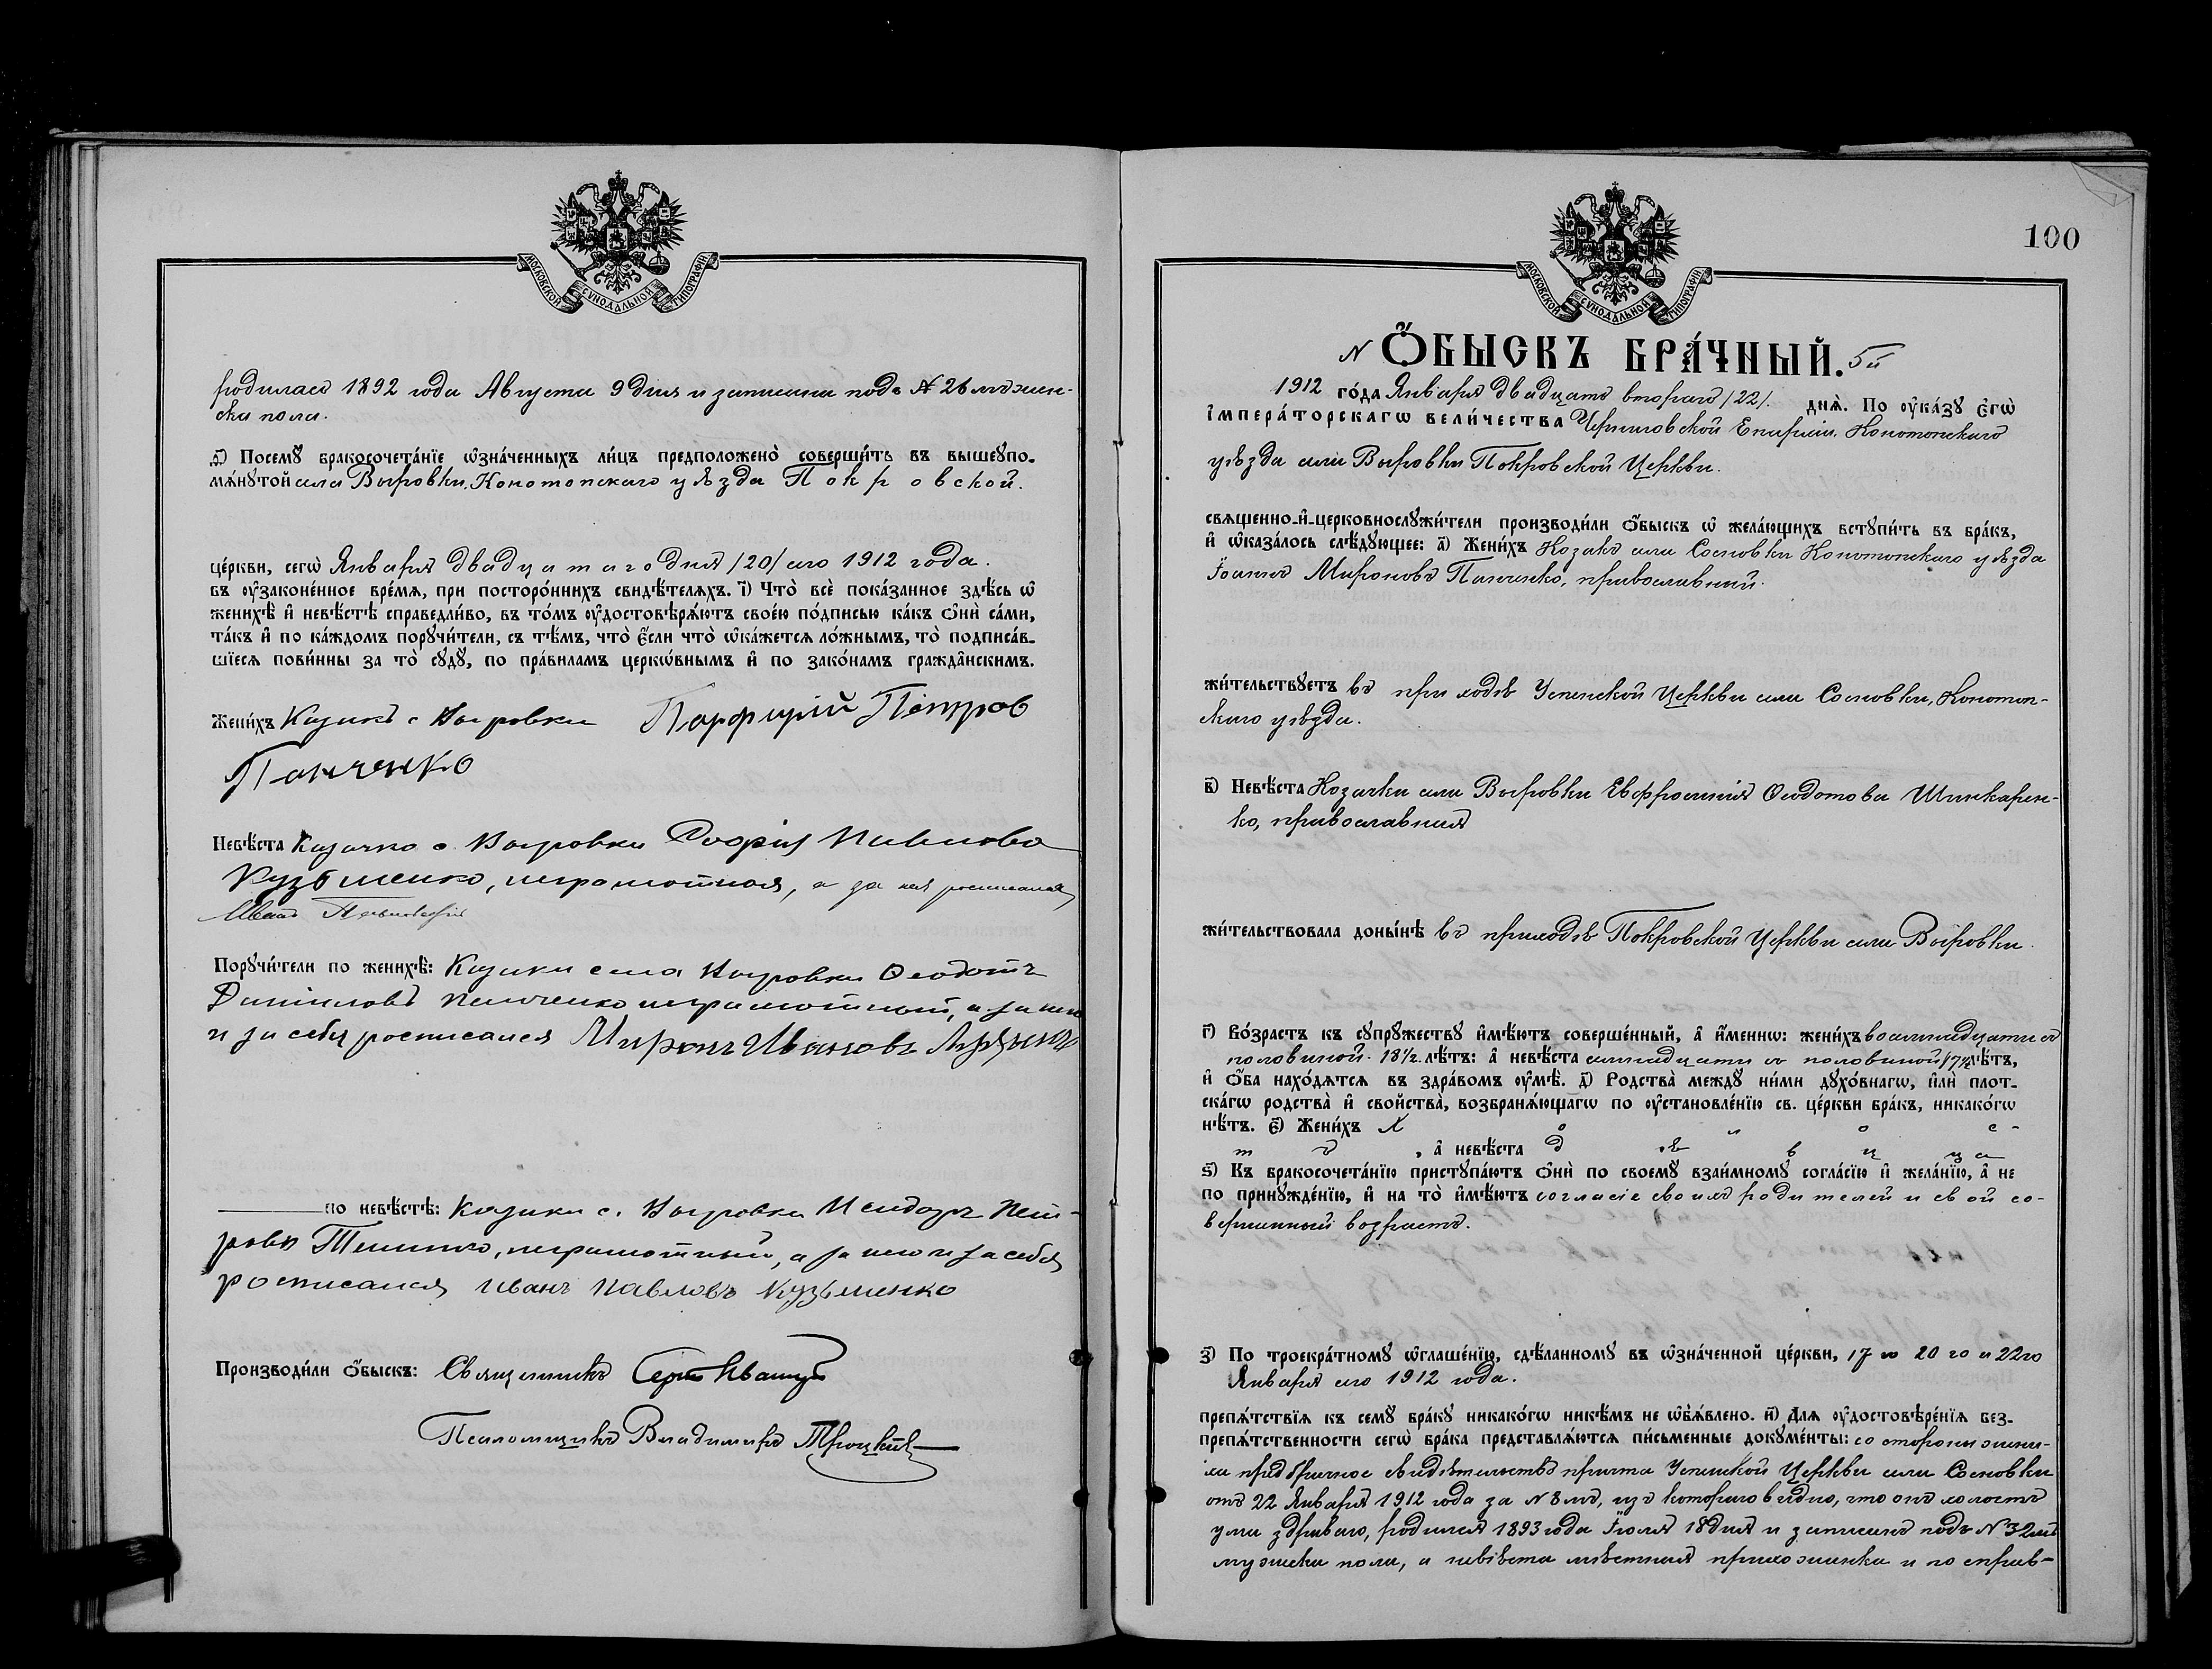 МОСКОВСКОЙ СѴНОДАЛЬНОЙ ТИПОГРАФІИ
родилась 1892 года Августа 9 дня и записана подъ № 26 мъ жен-
ска пола.
ѳ҃) Посемꙋ бракосочета́нїе ѡзна́ченныхъ ли́цъ предположено̀ соверши́ть въ вышеꙋпо-
мѧ́нꙋтой села Выровки, Конотопскаго уѣзда Покровской.
це́ркви, сегѡ̀ Января двадцатаго дня /20/ сего 1912 года.
въ ᲂу҆законе́нное вре́мѧ, при посторо́ннихъ свидѣ́телѧхъ. і҃) Что̀ всѐ пока́занное здѣ́сь ѡ҆
женихѣ̀ и҆ невѣ́стѣ справедли́во, въ то́мъ ᲂу҆достовѣрѧ́ютъ свое́ю по́дписью ка́къ ѻ҆нѝ са́ми,
та́къ и҆ по ка́ждомъ порꙋчи́тели, съ тѣ́мъ, что̀ є҆́сли что̀ ѡ҆ка́жетсѧ ло́жнымъ, то̀ подписа́в-
шїесѧ пови́нны за то̀ сꙋдꙋ̀, по пра́виламъ церкѡ́внымъ и҆ по зако́намъ гражда̑нскимъ.
Жени́хъ Казакъ с Выровки Парфирій Петров
Панченко
Невѣ́ста Казачка с. Выровки Софія Павлова
Кузьменко, неграмотная, а за нея росписался
Иванъ
Порꙋчи́тели по женихѣ̀: Казаки села Выровки Ѳеодотъ
Даниловъ Панченко неграмотный, а за него
и за себя росписался Миронъ Ивановъ
по невѣ́стѣ: Казаки с. Выровки Исидоръ Пет-
ровъ неграмотный, а за него и за себя
росписался Иванъ Павловъ Кузьменко
Производи́ли ѻ҆́быскъ: Священникъ
Псаломщикъ Владимиръ Троцкій
МОСКОВСКОЙ СѴНОДАЛЬНОЙ ТИПОГРАФІИ
100
N Ѻ҆́БЫСКЪ БРА́ЧНЫЙ. 5й
1912 го́да Января двадцать втораго /22/. днѧ̀. По ᲂу҆ка́зꙋ Є҆гѡ̀
І҆мпера́торскагѡ вели́чества Черниговской Епархіи, Конотопскаго
уѣзда села Выровки Покровской Церкви.
свѧщенно-и҆-церковнослꙋжи́тели производи́ли ѻ҆́быскъ ѡ҆ жела́ющихъ встꙋпи́ть въ бра́къ,
и҆ ѡ҆каза́лось слѣ́дꙋющее: а҃) Жени́хъ Козакъ села Сосновки Конотопскаго уѣзда
Іоаннъ Мироновъ Панченко, православный.
жи́тельствꙋетъ въ приходѣ Успенской Церкви села Сосновки, Конотоп-
скаго уѣзда.
в҃) Невѣ́ста Козачка села Выровки Евфросинія Ѳеодотова Шинкарен-
ко, православная
жи́тельствовала доны́нѣ въ приходѣ Покровской Церкви села Выровки.
г҃) Во́зрастъ къ сꙋпрꙋ́жествꙋ и҆мѣ́ютъ соверше́нный, а҆ и҆́меннѡ: жени́хъ восемнадцати съ
половиной. 18½. лѣ́тъ: а҆ невѣ́ста семнадцати съ половиной 17½ лѣ́тъ,
и҆ ѻ҆́ба нахо́дѧтсѧ въ здра́вомъ ᲂу҆мѣ̀. д҃) Родства̀ междꙋ̀ ни́ми дꙋхо́внагѡ, и҆лѝ плот-
ска́гѡ родства̀ и҆ свойства̀, возбранѧ́ющагѡ по ᲂу҆становле́нїю св. це́ркви бра́къ, никако́гѡ
нѣ́тъ. є҃) Жени́хъ х о л о с -
т ъ , а҆ невѣ́ста д ѣ в и ца
ѕ҃) Къ бракосочета́нїю пристꙋпа́ютъ ѻ҆нѝ по своемꙋ̀ взаи́мномꙋ согла́сїю и҆ жела́нїю, а҆ не
по принꙋжде́нїю, и҆ на то̀ и҆мѣ́ютъ согласіе своихъ родителей и свой со-
вершенный возрастъ.
з҃) По троекра́тномꙋ ѡ҆глаше́нїю, сдѣ́ланномꙋ въ ѡ҆зна́ченной це́ркви, 17 го 20 го и 22го
Января сего 1912 года.
препѧ́тствїѧ къ семꙋ̀ бра́кꙋ никако́гѡ никѣ́мъ не ѡ҆б̾ѧ́влено. и҃) Длѧ ᲂу҆достовѣре́нїѧ без-
препѧ́тственности сегѡ̀ бра́ка представлѧ́ютсѧ пи́сьменные докꙋме́нты: со стороны жени-
ха предбрачное свидѣтельство причта Успенской Церкви села Сосновки
отъ 22 Января 1912 года за № 8 мъ, изъ котораго видно, что онъ холостъ
ума здраваго, родился 1893 года Іюля 18 дня и записанъ подъ № 32мъ
мужска пола, а невѣста мѣстная прихожанка и по справ-